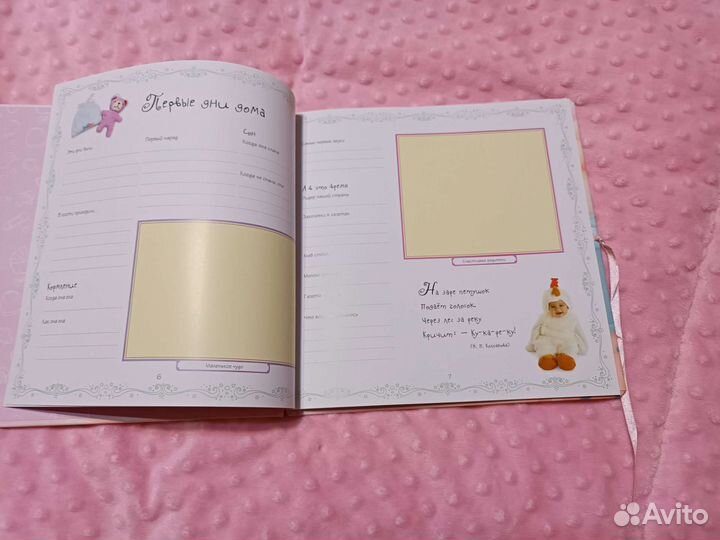 Первые дни дома
Эти дни были
Первый наряд
Сон
Когда она спала
Когда не спала, она
В гости приходили
Кормление
Когда она ела
Как она ела
Маленькое чудо
6
Самые первые звуки
А в это время
Лидер нашей страны
Заголовки в газетах
Хлеб стоил
Молоко
Газета
Что
Счастливые родители
На заре петушок
Подаёт голосок.
Через лес за реку
Кричит: — Ку-ка-ре-ку!
7
Avito